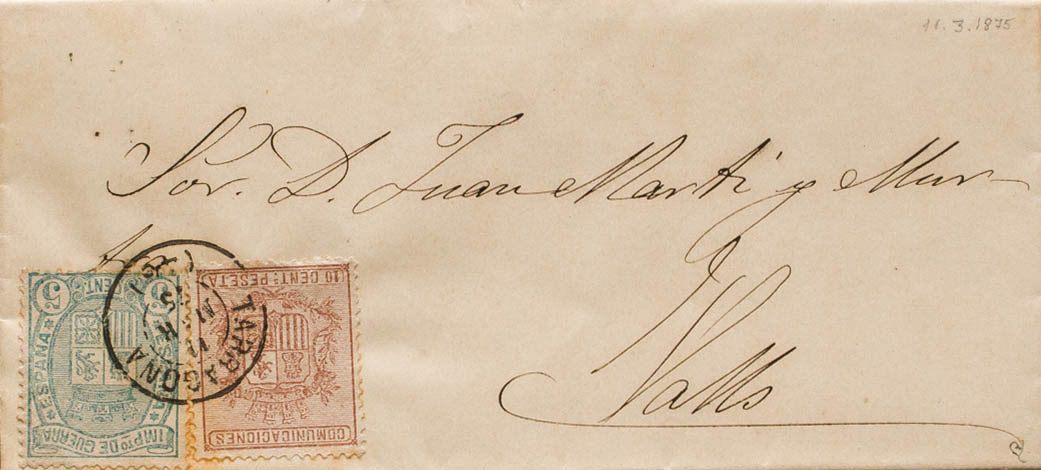 11.3.1875
Sor. D. Juan Marti y Mur-
Valls
TARRAGONA
11
MAR
75
10 CENT.s PESETA
COMUNICACIONES
5 CENT. 5
ESPAÑA
IMPTO DE GUERRA